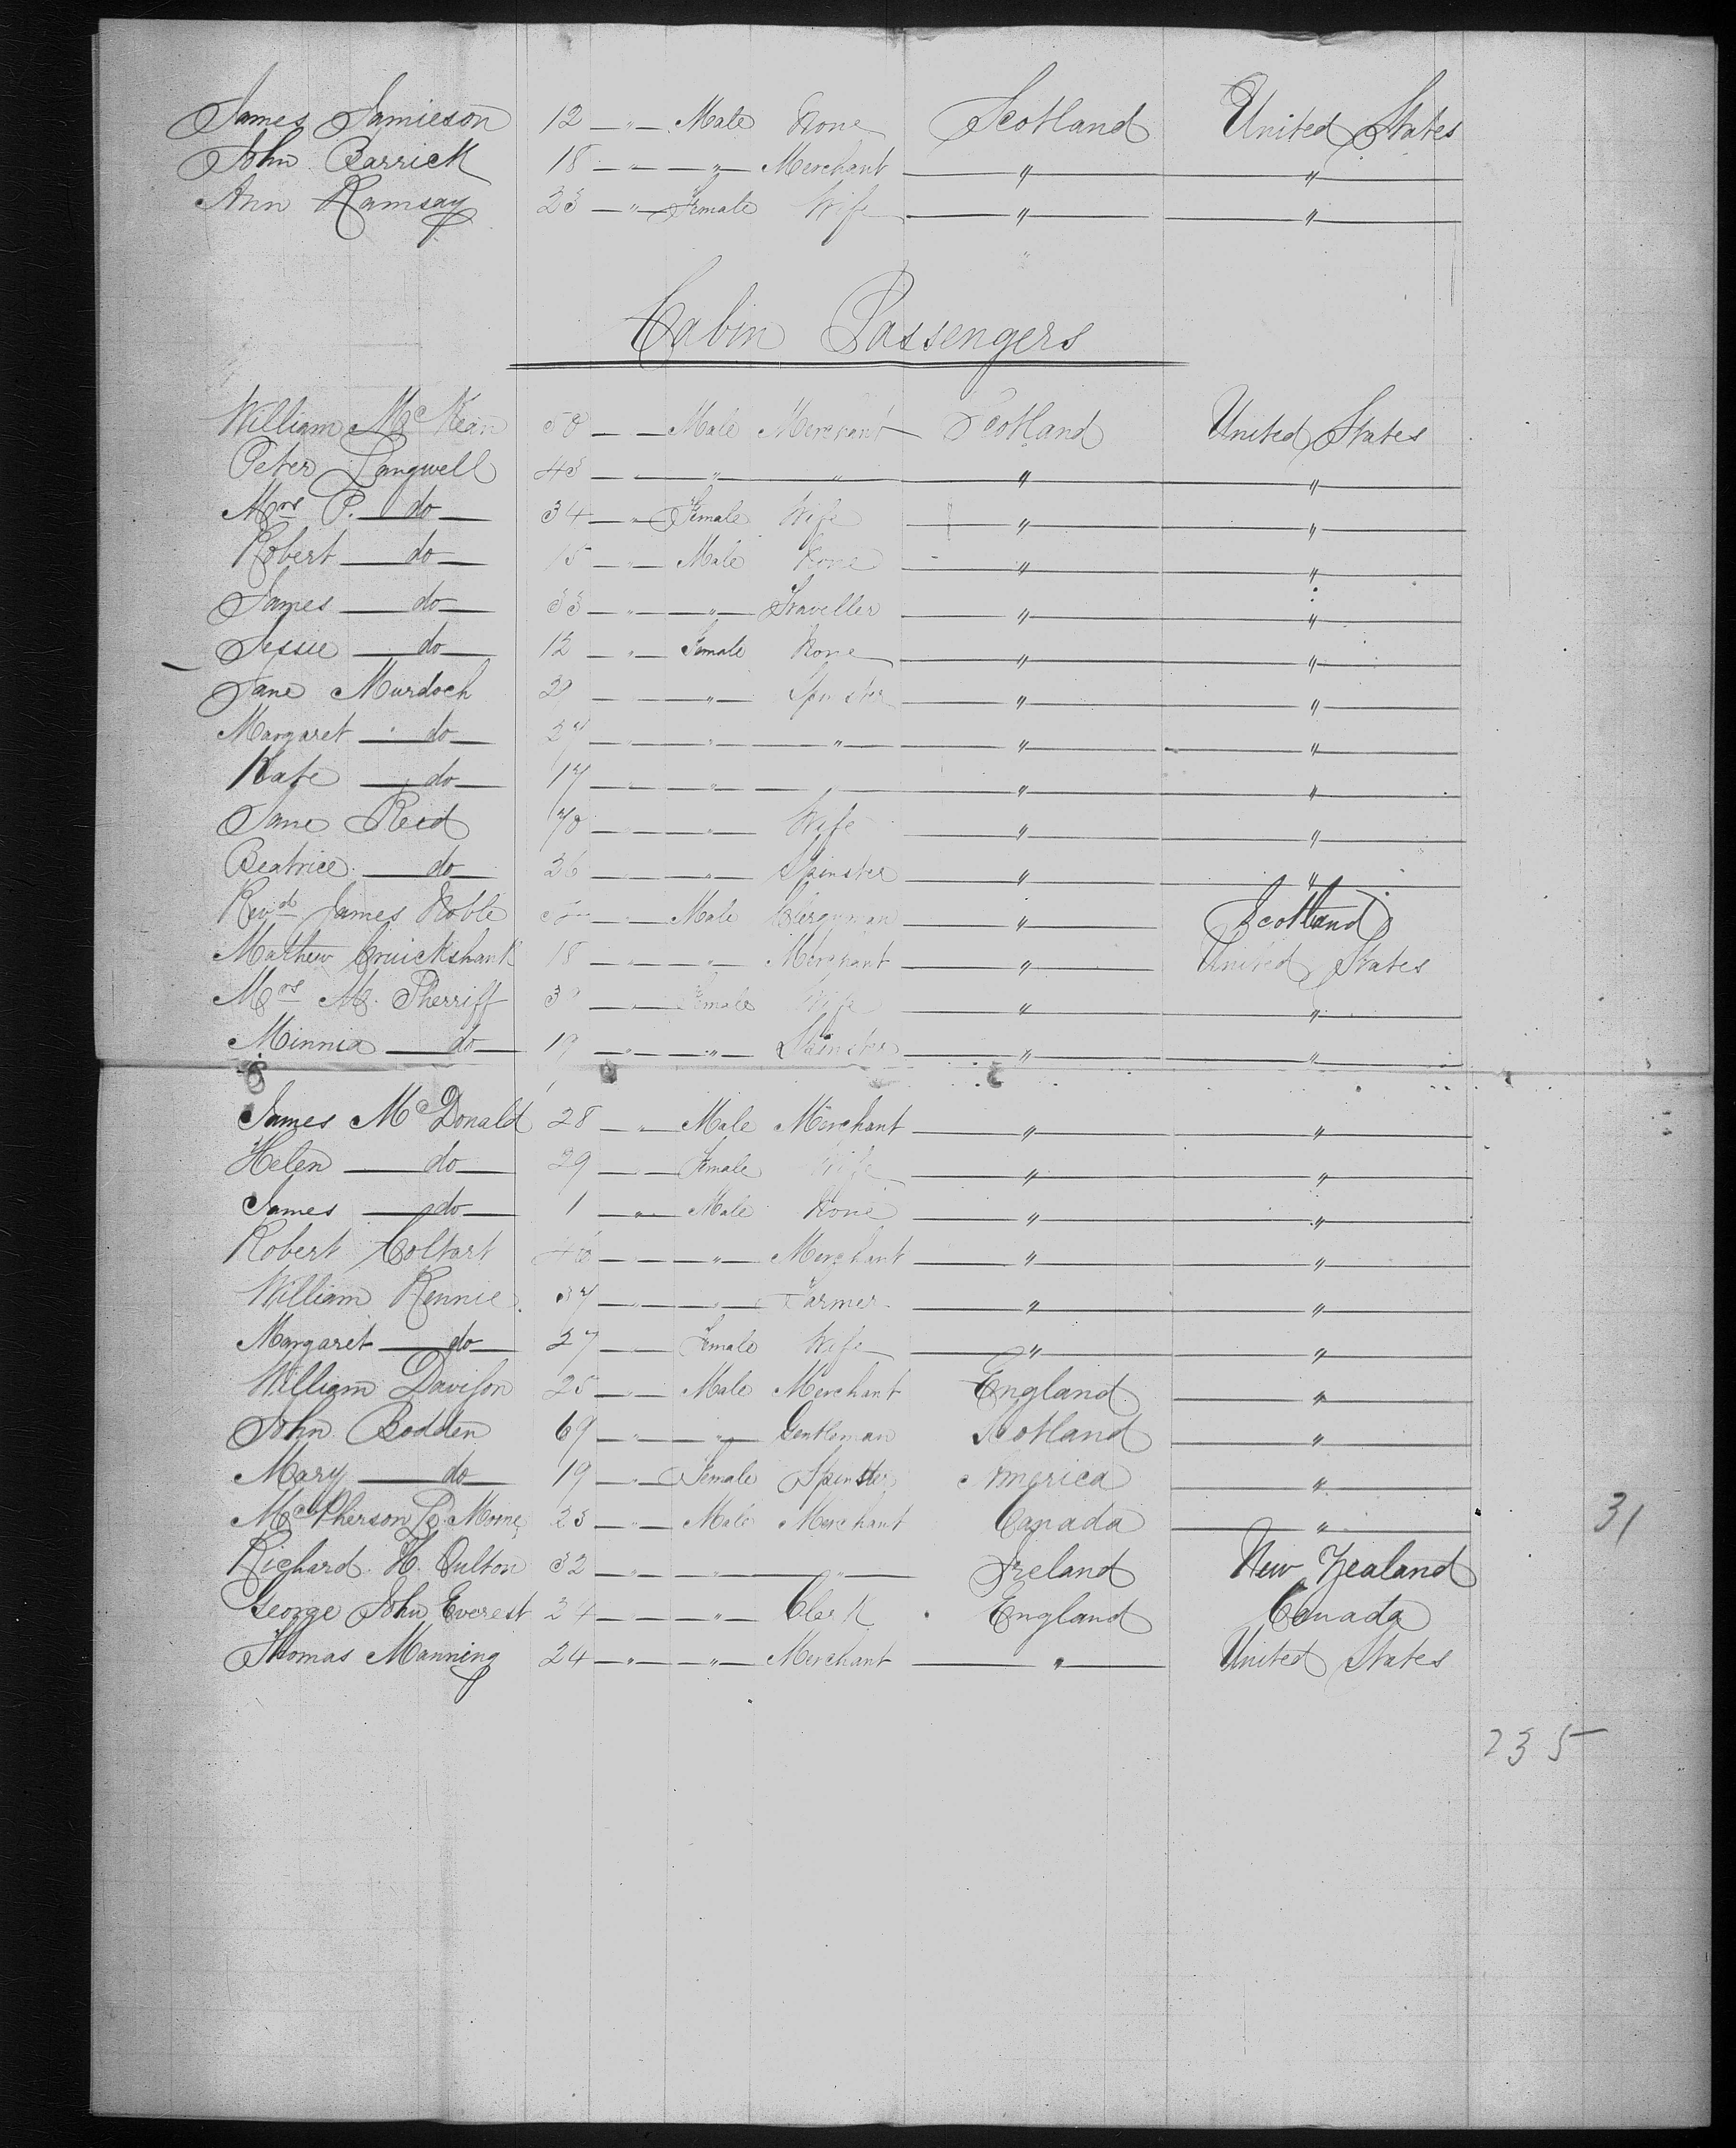 James Jamieson 12 — " — Male None Scotland United States
John Barrick 18 — " — " — Merchant — " — — " —
Ann Ramsay 23 — " — Female Wife — " — — " —
Cabin Passengers
William McKean 50 — — Male Merchant — Scotland United States
Peter Langwell 43 — — " — " — " — — " —
Mrs P. — do — 34 — " — Female Wife — " — — " —
Robert — do — 15 — " — Male None — " — — " —
James — do — 33 — " — " — Traveller — " — — " —
Jessie — do — 12 — " — Female None — " — — " —
Jane Murdoch 29 — — " — Spinster — " — — " —
Margaret — do — 27 — " — " — " — " — — " —
Kate — do — 17 — " — " — — " — — " —
Jane Reid 70 — " — " — Wife — " — — " —
Beatrice — do — 26 — — " — Spinster — " — — " —
Revd James Noble — " — Male Clergyman — " — Scotland
Mathew Cruickshank 18 — " — " — Merchant — " — United States
Mrs M. Sherriff — " — Female Wife — " — — " —
Minnie — do — 19 — " — " — Spinster — " — — " —
James McDonald 28 — " — Male Merchant — " — — " —
Helen — do — 29 — " — Female Wife — " — — " —
James — do — 1 — " — Male None — " — — " —
Robert Coltart 40 — — " — Merchant — " — — " —
William Rennie. 37 — " — " — Farmer — " — — " —
Margaret — do — 27 — — Female Wife — " — — " —
William Davison 25 — " — Male Merchant England — " —
John Bodden 69 — " — " — Gentleman Scotland — " —
Mary — do — 19 — " — Female Spinster America — " —
McPherson Le Moine 23 — " — Male Merchant Canada — " — 31
Richard H. Oulton 32 — " — " — " — Ireland New Zealand
George John Everest 24 — — " — Clerk England Canada
Thomas Manning 24 — " — " — Merchant — " — United States
235